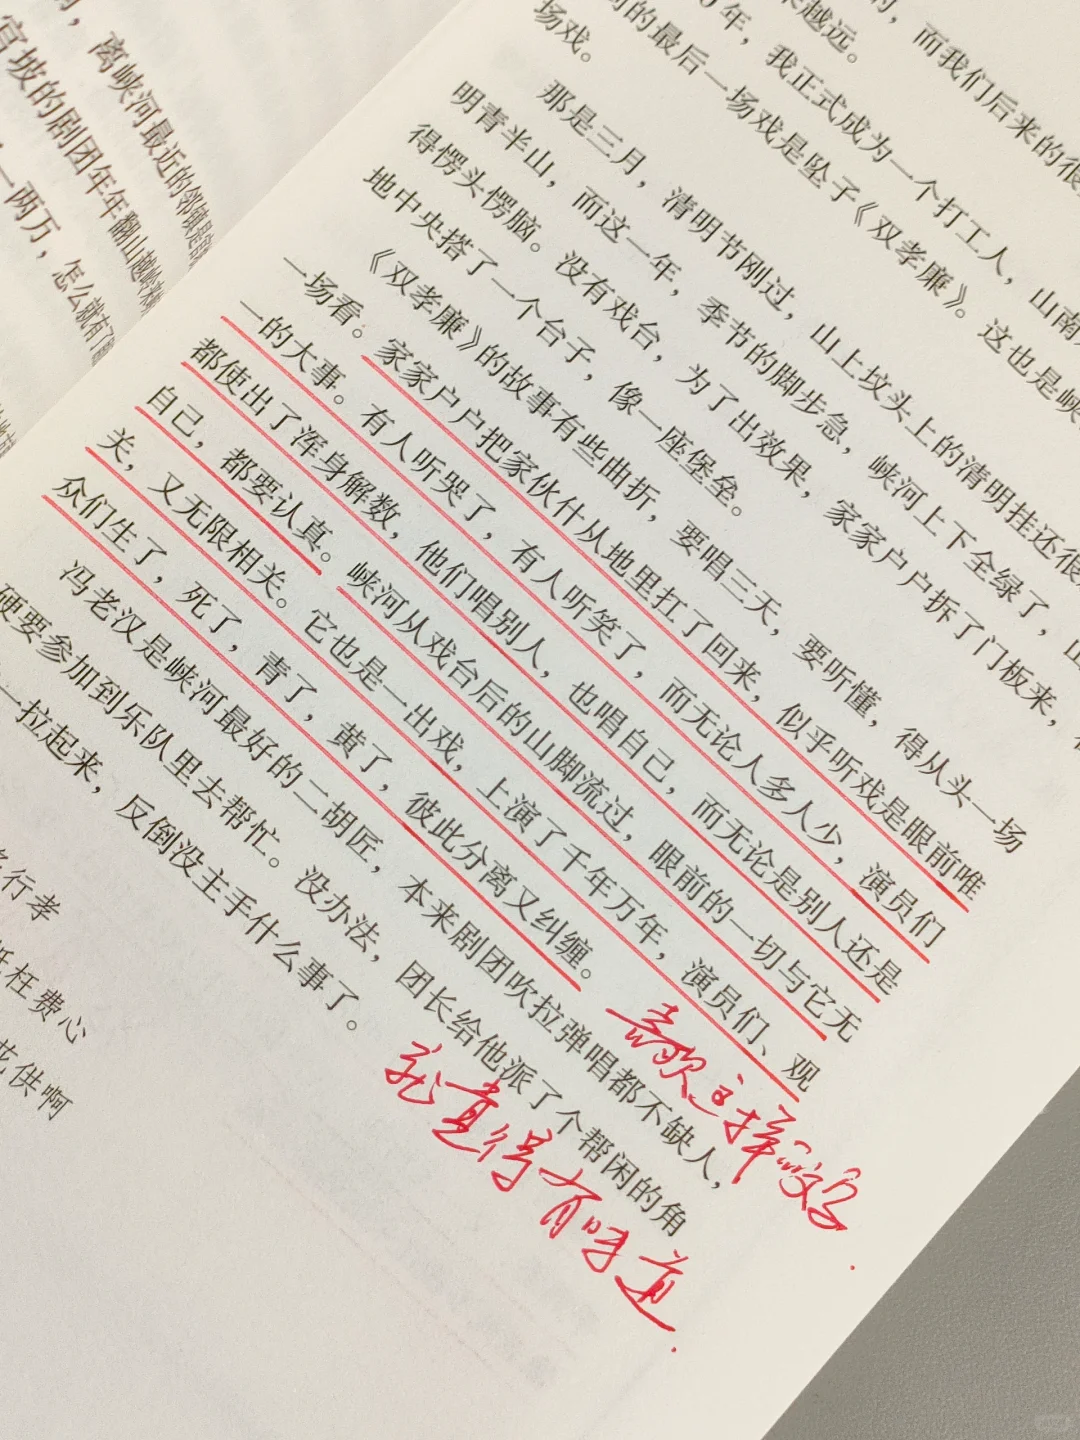 ，离峡河最近的邻镇是官
官坡的剧团年年翻山越岭来
一两万，怎么就有了
，而我们后来的很
来越远。
0年，我正式成为一个打工人，山南
的最后一场戏是坠子《双孝廉》。这也是峡
场戏。
那是三月，清明节刚过，山上坟头上的清明挂还很
明青半山，而这一年，季节的脚步急，峡河上下全绿了，山
得愣头愣脑。没有戏台，为了出效果，家家户户拆了门板来，
地中央搭了一个台子，像一座堡垒。
《双孝廉》的故事有些曲折，要唱三天，要听懂，得从头一场
一场看。家家户户把家伙什从地里扛了回来，似乎听戏是眼前唯
一的大事。有人听哭了，有人听笑了，而无论人多人少，演员们
都使出了浑身解数，他们唱别人，也唱自己，而无论是别人还是
自己，都要认真。峡河从戏台后的山脚流过，眼前的一切与它无
关，又无限相关。它也是一出戏，上演了千年万年，演员们、观
众们生了，死了，青了，黄了，彼此分离又纠缠。
冯老汉是峡河最好的二胡匠，本来剧团吹拉弹唱都不缺人，
硬要参加到乐队里去帮忙。没办法，团长给他派了个帮闲的角
一拉起来，反倒没主手什么事了。
行孝
枉费心
花供啊
喜欢这样
得有味道.